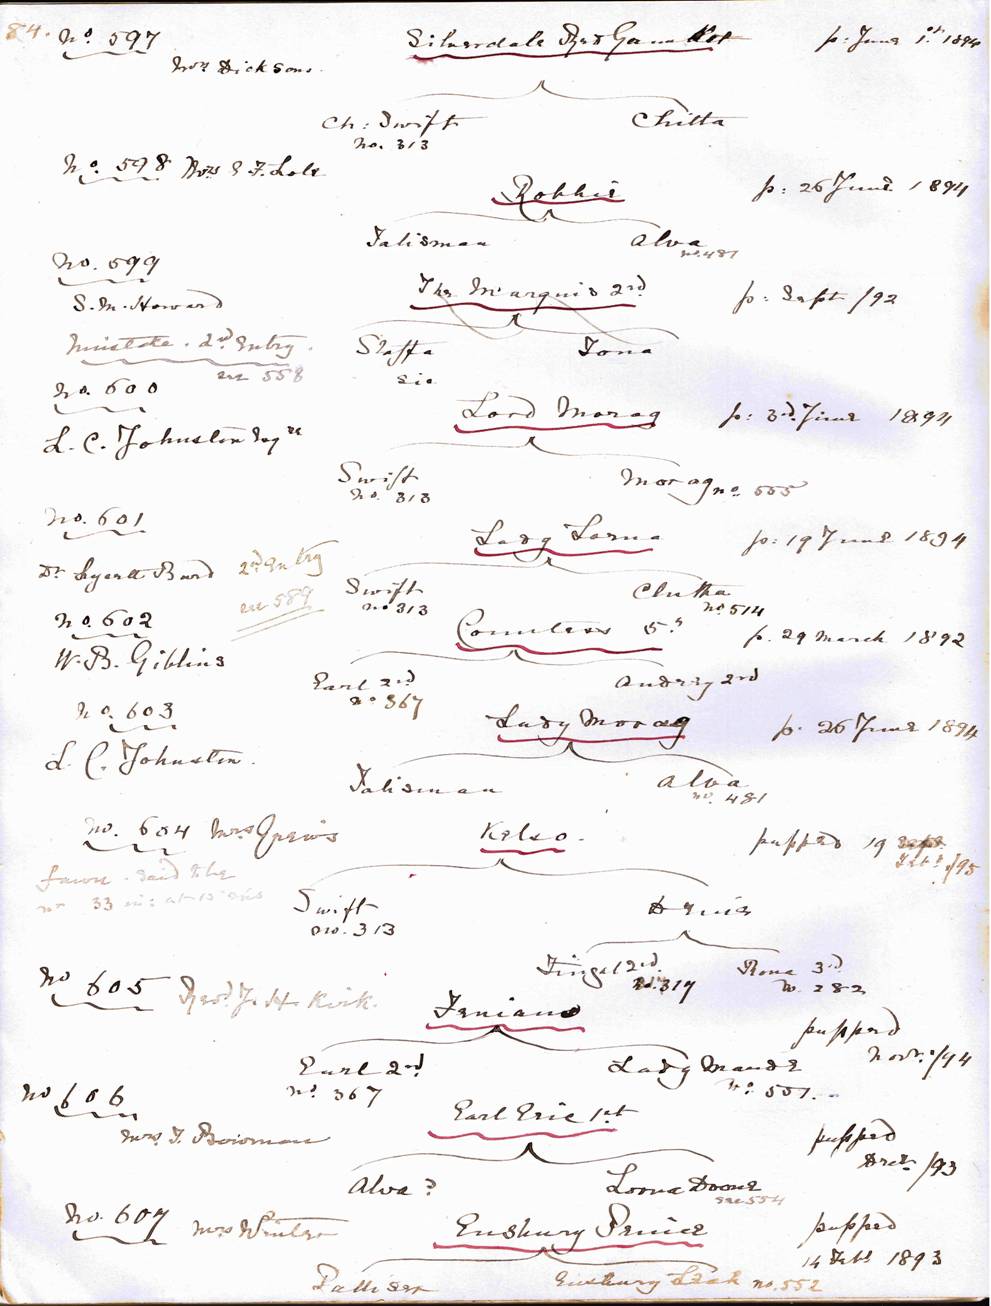 84.
No. 597 Silverdale Red Gauntlet p: June 1st 1894
Mrs Dickson.
Ch: Swift Chitta
No. 313
No. 598 Mrs E F. Lole
Robbie p: 26 June 1894
Talisman Alva
no. 481
No. 599
The Marquis 2nd p: Sept /92
S. M. Howard
mistake. 2nd Entry.
see 558
Staffa Iona
sic
No. 600
Lord Morag p: 3rd June 1894
L. C. Johnston Esqre
Swift Morag no. 555
No. 313
No. 601
Lady Lorna p: 19 June 1894
Dr Lyall Burd 2nd Entry
see 589
Swift Clutha
no 313 no 514
No. 602
Countess 5th p. 29 March 1892
W. B. Giblins
Earl 2nd Audrey 2nd
no 367
No. 603
Lady Morag p: 26 June 1894
L. C. Johnston.
Talisman Alva
no. 481
No. 604 Mrs Kelso. pupped 19 Sept.
Feb: /95
fawn. said to be
33 in: at 15
Swift
no. 313
Fingal 2nd Rona 3rd
no. 319 No. 282
No 605 Revd J. H. Kirk.
pupped
Novr: /94
Earl 2nd Lady Maude
No. 367 No. 551.
No 606
Earl Eric 1st
Mrs F. Bowman pupped
Decr /93
Alva? Lorna Doone
see 554
No. 607 Mrs Winter Ensbury pupped
14 Feb: 1893
Palliser Ensbury no. 552